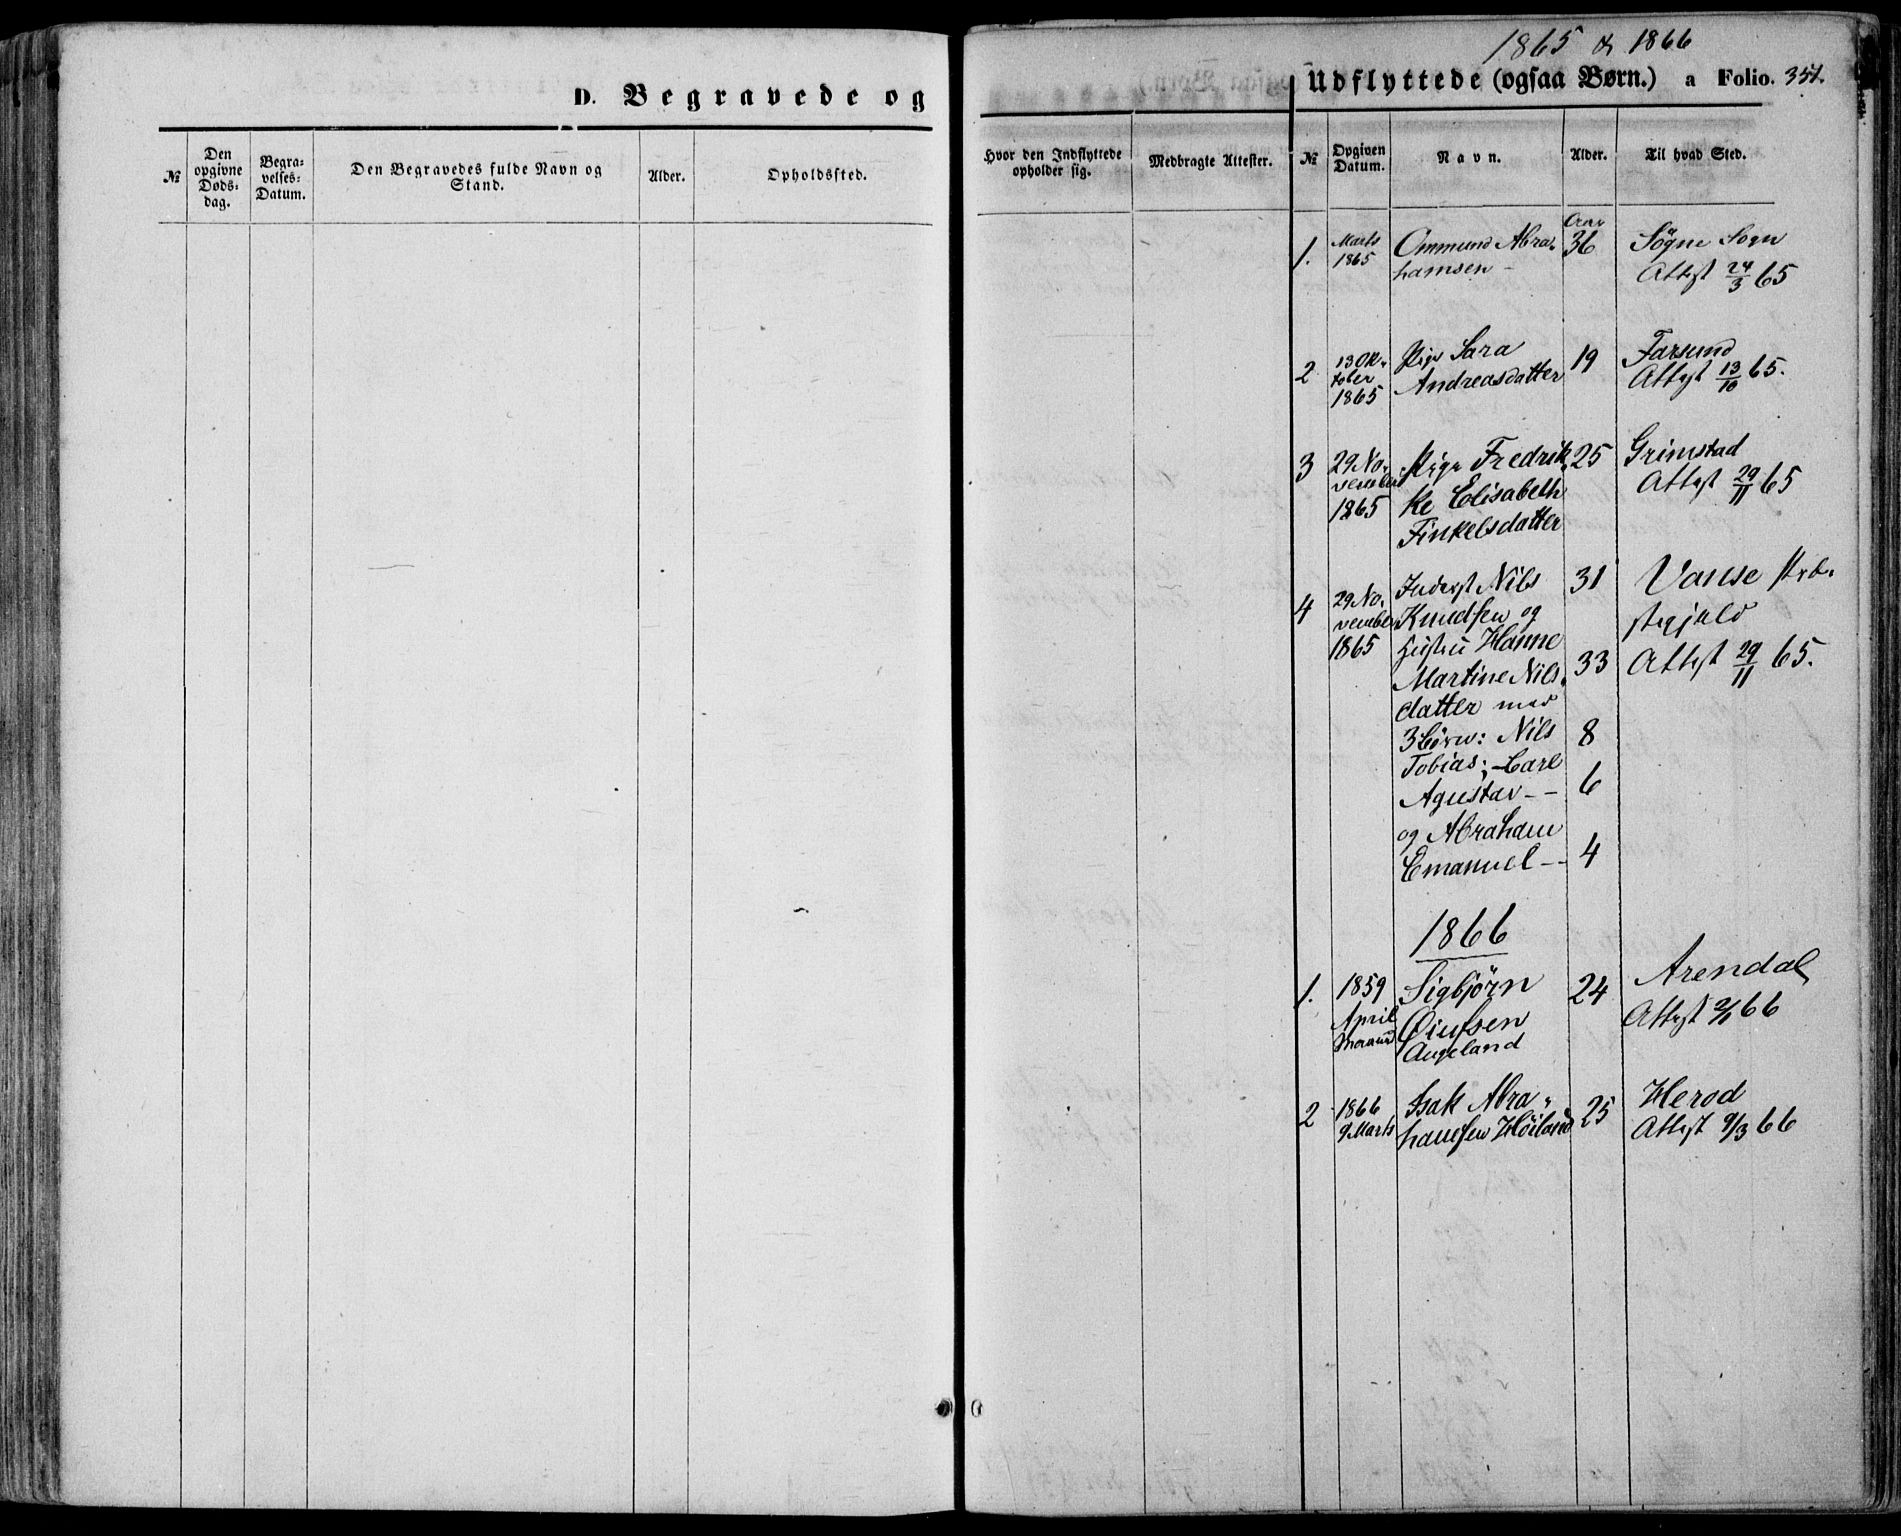 D. Begravede og
№
Den
opgivne
Døds-
dag.
Begra-
velses-
Datum.
Den Begravedes fulde Navn og
Stand.
Alder.
Opholdssted.
1865 & 1866
Udflyttede (ogsaa Børn.) a Folio. 351.
Hvor den Indflyttede
opholder sig.
Medbragte Attester.
№
Opgiven
Datum.
Navn.
Alder.
Til hvad Sted.
1.
Marts
1865
Ommund Abra-
hamsen
Aar
36
Søgne Sogn
Attest 24/3 65
2
13 Ok-
tober
1865
Pige Sara
Andreasdatter
19
Farsund
Attest 13/10 65.
3
29 No-
vember
1865
Pige Fredrik
ke Elisabeth
Finkelsdatter
25
Grimstad
Attest 29/11 65
4
29 No-
vember
1865
Inderst Nils
Knudsen og
Hustru Hanne
Martine Nils-
datter med
3 børn: Nils
Tobias; Carl
Agustav
og Abraham
Emanuel
31
33
8
6
4
Vanse Præ-
stegjeld
Attest 29/11 65.
1866
1.
1859
April
Sigbjørn
Øiufsen
Augeland
24
Arendal
Attest 2/1 66
2
1866
9 Marts
Isak Abra-
hamsen Høiland
25
Herod
Attest 9/3 66